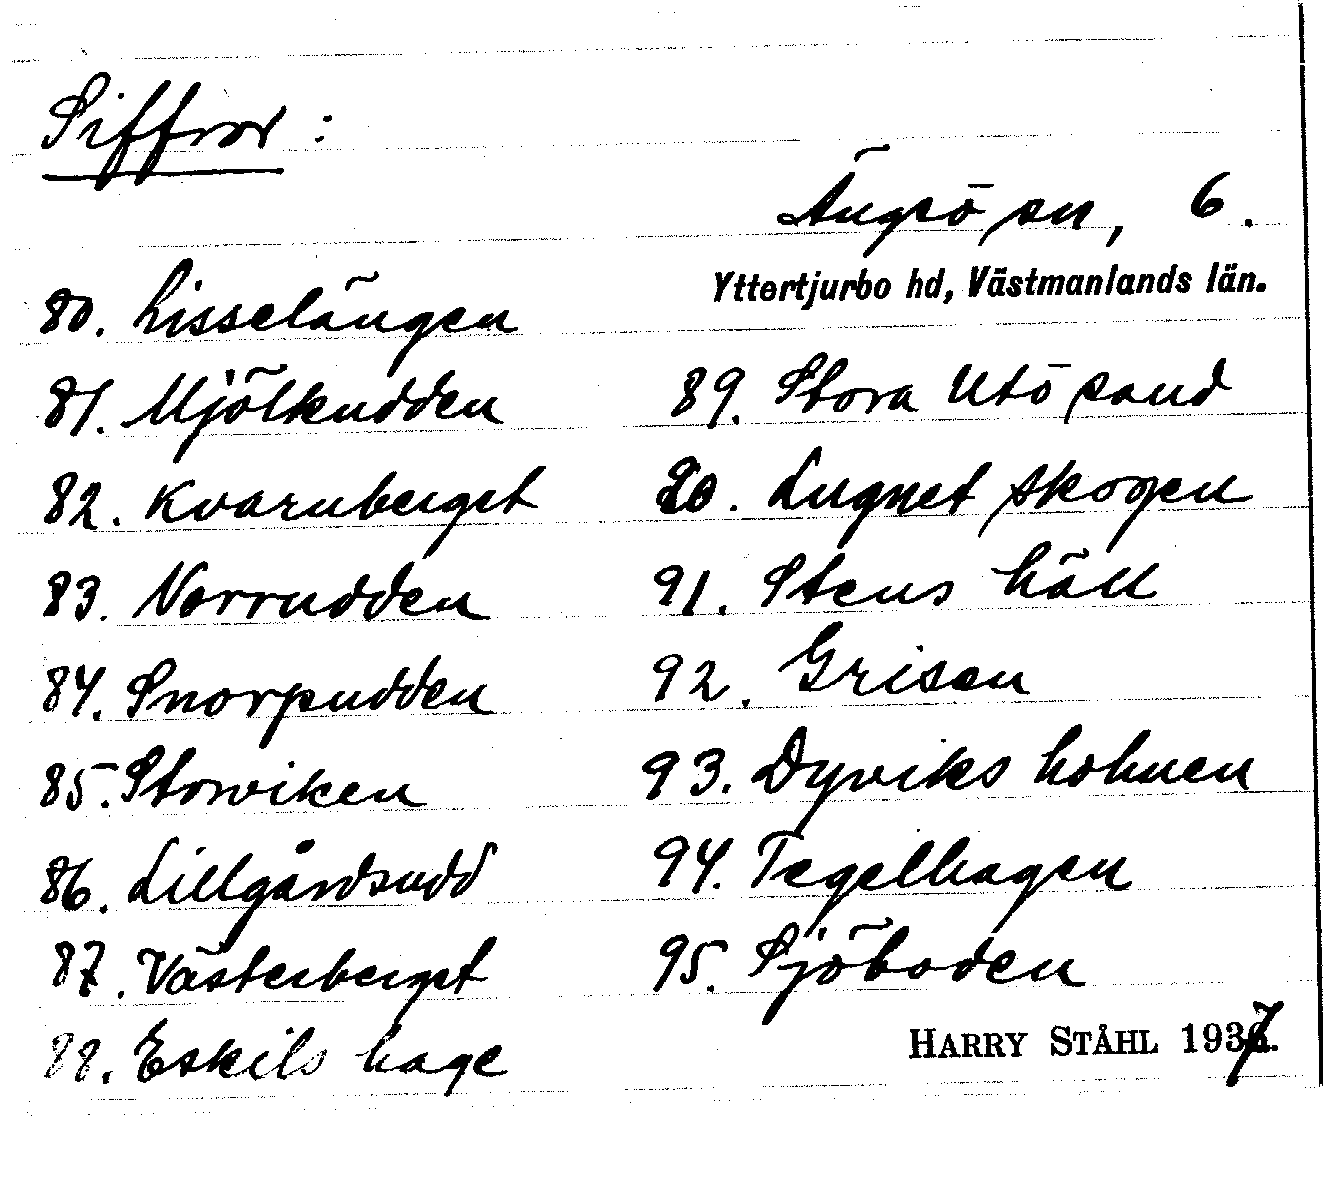 Siffror:
Ängsö sn, 6.
Yttertjurbo hd, Västmanlands län.
80. Lisselängen
81. Mjölkudden
82. Kvarnberget
83. Norrudden
84. Snorpudden
85. Storviken
86. Lillgårdsudd
87. Västerberget
88. Eskils hage
89. Stora Utö sand
90. Lugnet skogen
91. Stens häll
92. Grisen
93. Dyviks holmen
94. Tegelhagen
95. Sjöboden
HARRY STÅHL 1937.